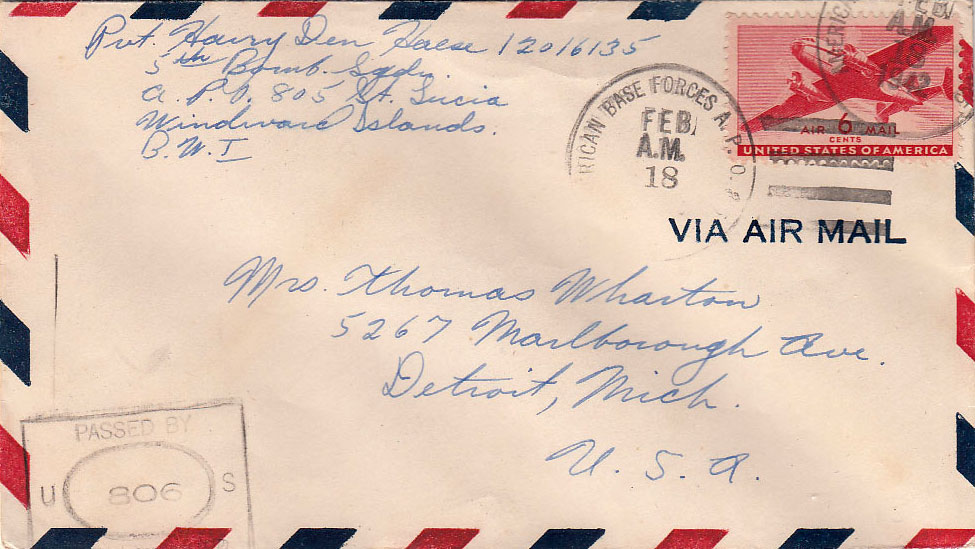 Pvt. Harry Den Haese 12016135
5th Bomb. Sqdn.
A. P. O. 805 St. Lucia
Windward Islands.
B. W. I
RICAN BASE FORCES A. P. O.
FEB
A.M.
18
AMERICAN
FEB
A.M.
18
1942
AIR 6 MAIL
CENTS
UNITED STATES OF AMERICA
VIA AIR MAIL
Mrs. Thomas Wharton
5267 Marlborough Ave.
Detroit, Mich.
U. S. A.
PASSED BY
U 806 S